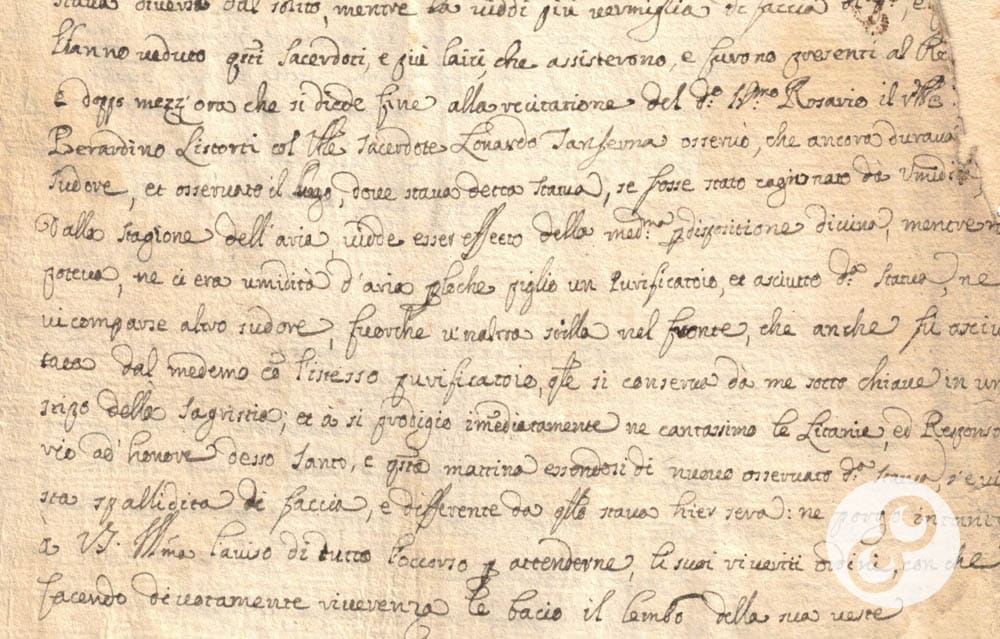 stava diversa dal solito, mentre la viddi più vermiglia di faccia
hanno veduto qsti sacerdoti, e più laici, che assisterono, e furono presenti al
E doppo mezz'ora che si diede fine alla recitatione del do Smo Rosario il
Berardino Listorti col sacerdote Leonardo osservò, che ancora durava
sudore, et osservato il luogo, dove stava detta statua, se fosse stato cagionato da
dalla stagione dell'aria, vidde esser effetto della medma dispositione divina, mentre
poteva, ne ci era umidità d'aria ploche pigliò un Purificatoio, et asciuttò da statua, ne
vi comparse altro sudore, fuorche un'altra stilla nel fronte, che anche fù asciu
tata dal medemo co l'istesso purificatoio, qle si conserva da me sotto chiave in un
stipo della sagristia; et à si prodigio imediatamente ne cantassimo le Litanie, ed Respons
rio ad honore desso santo, e qsta mattina essendosi di nuovo osservato da statua s'è vi
sta spallidita di faccia, e differente da qllo stava hier sera: ne porgo intanto
à VS. Illma l'aviso di tutto l'occorso p attenderne, li suoi riveriti ordini, con che
facendo divotamente riverenza le bacio il lembo della sua veste